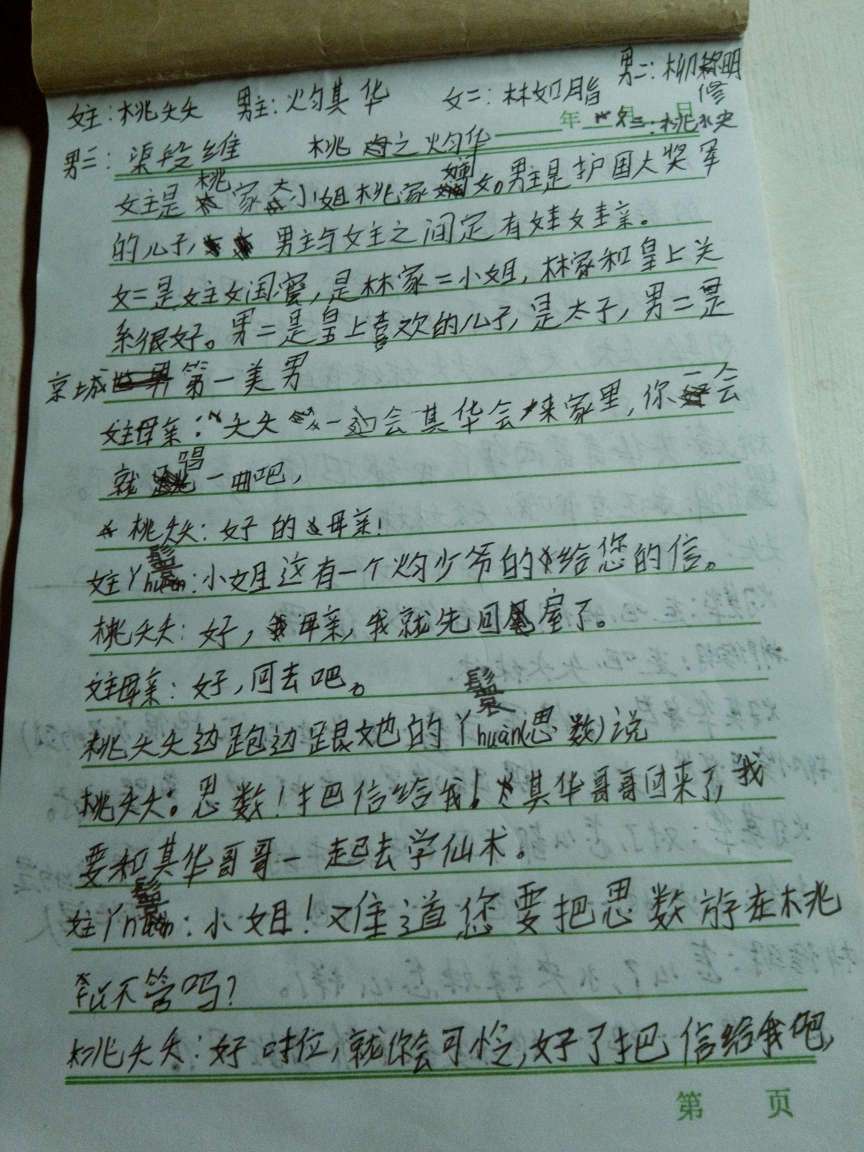 女主:桃夭夭 男主:灼其华 女二:林如脂 男二:柳修明
年 月 日 女三:桃水央
男三:渠段维 桃之灼华
女主是桃家大小姐桃家嫡女。男主是护国大奖军
的儿子, 男主与女主之间定有娃娃亲。
女二是女主女闺蜜,是林家二小姐,林家和皇上关
系很好。男二是皇上喜欢的儿子,是太子,男二是
京城第一美男
女主母亲:夭夭 一会其华会来家里,你一会
就唱一曲吧,
桃夭夭:好的母亲!
女主丫鬟:小姐这有一个灼少爷的给您的信。
桃夭夭:好,母亲,我就先回屋了。
女主母亲:好,回去吧。
桃夭夭边跑边跟她的丫鬟(思数)说
桃夭夭:思数!把信给我!其华哥哥回来了,我
要和其华哥哥一起去学仙术。
女主丫鬟:小姐!难道您要把思数放在桃
不管吗?
桃夭夭:好啦,就你会可怜,好了把信给我吧,
第 页